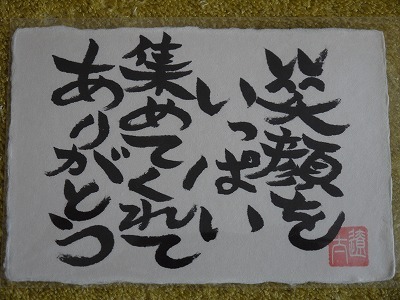 笑顔を
いっぱい
集めてくれて
ありがとう